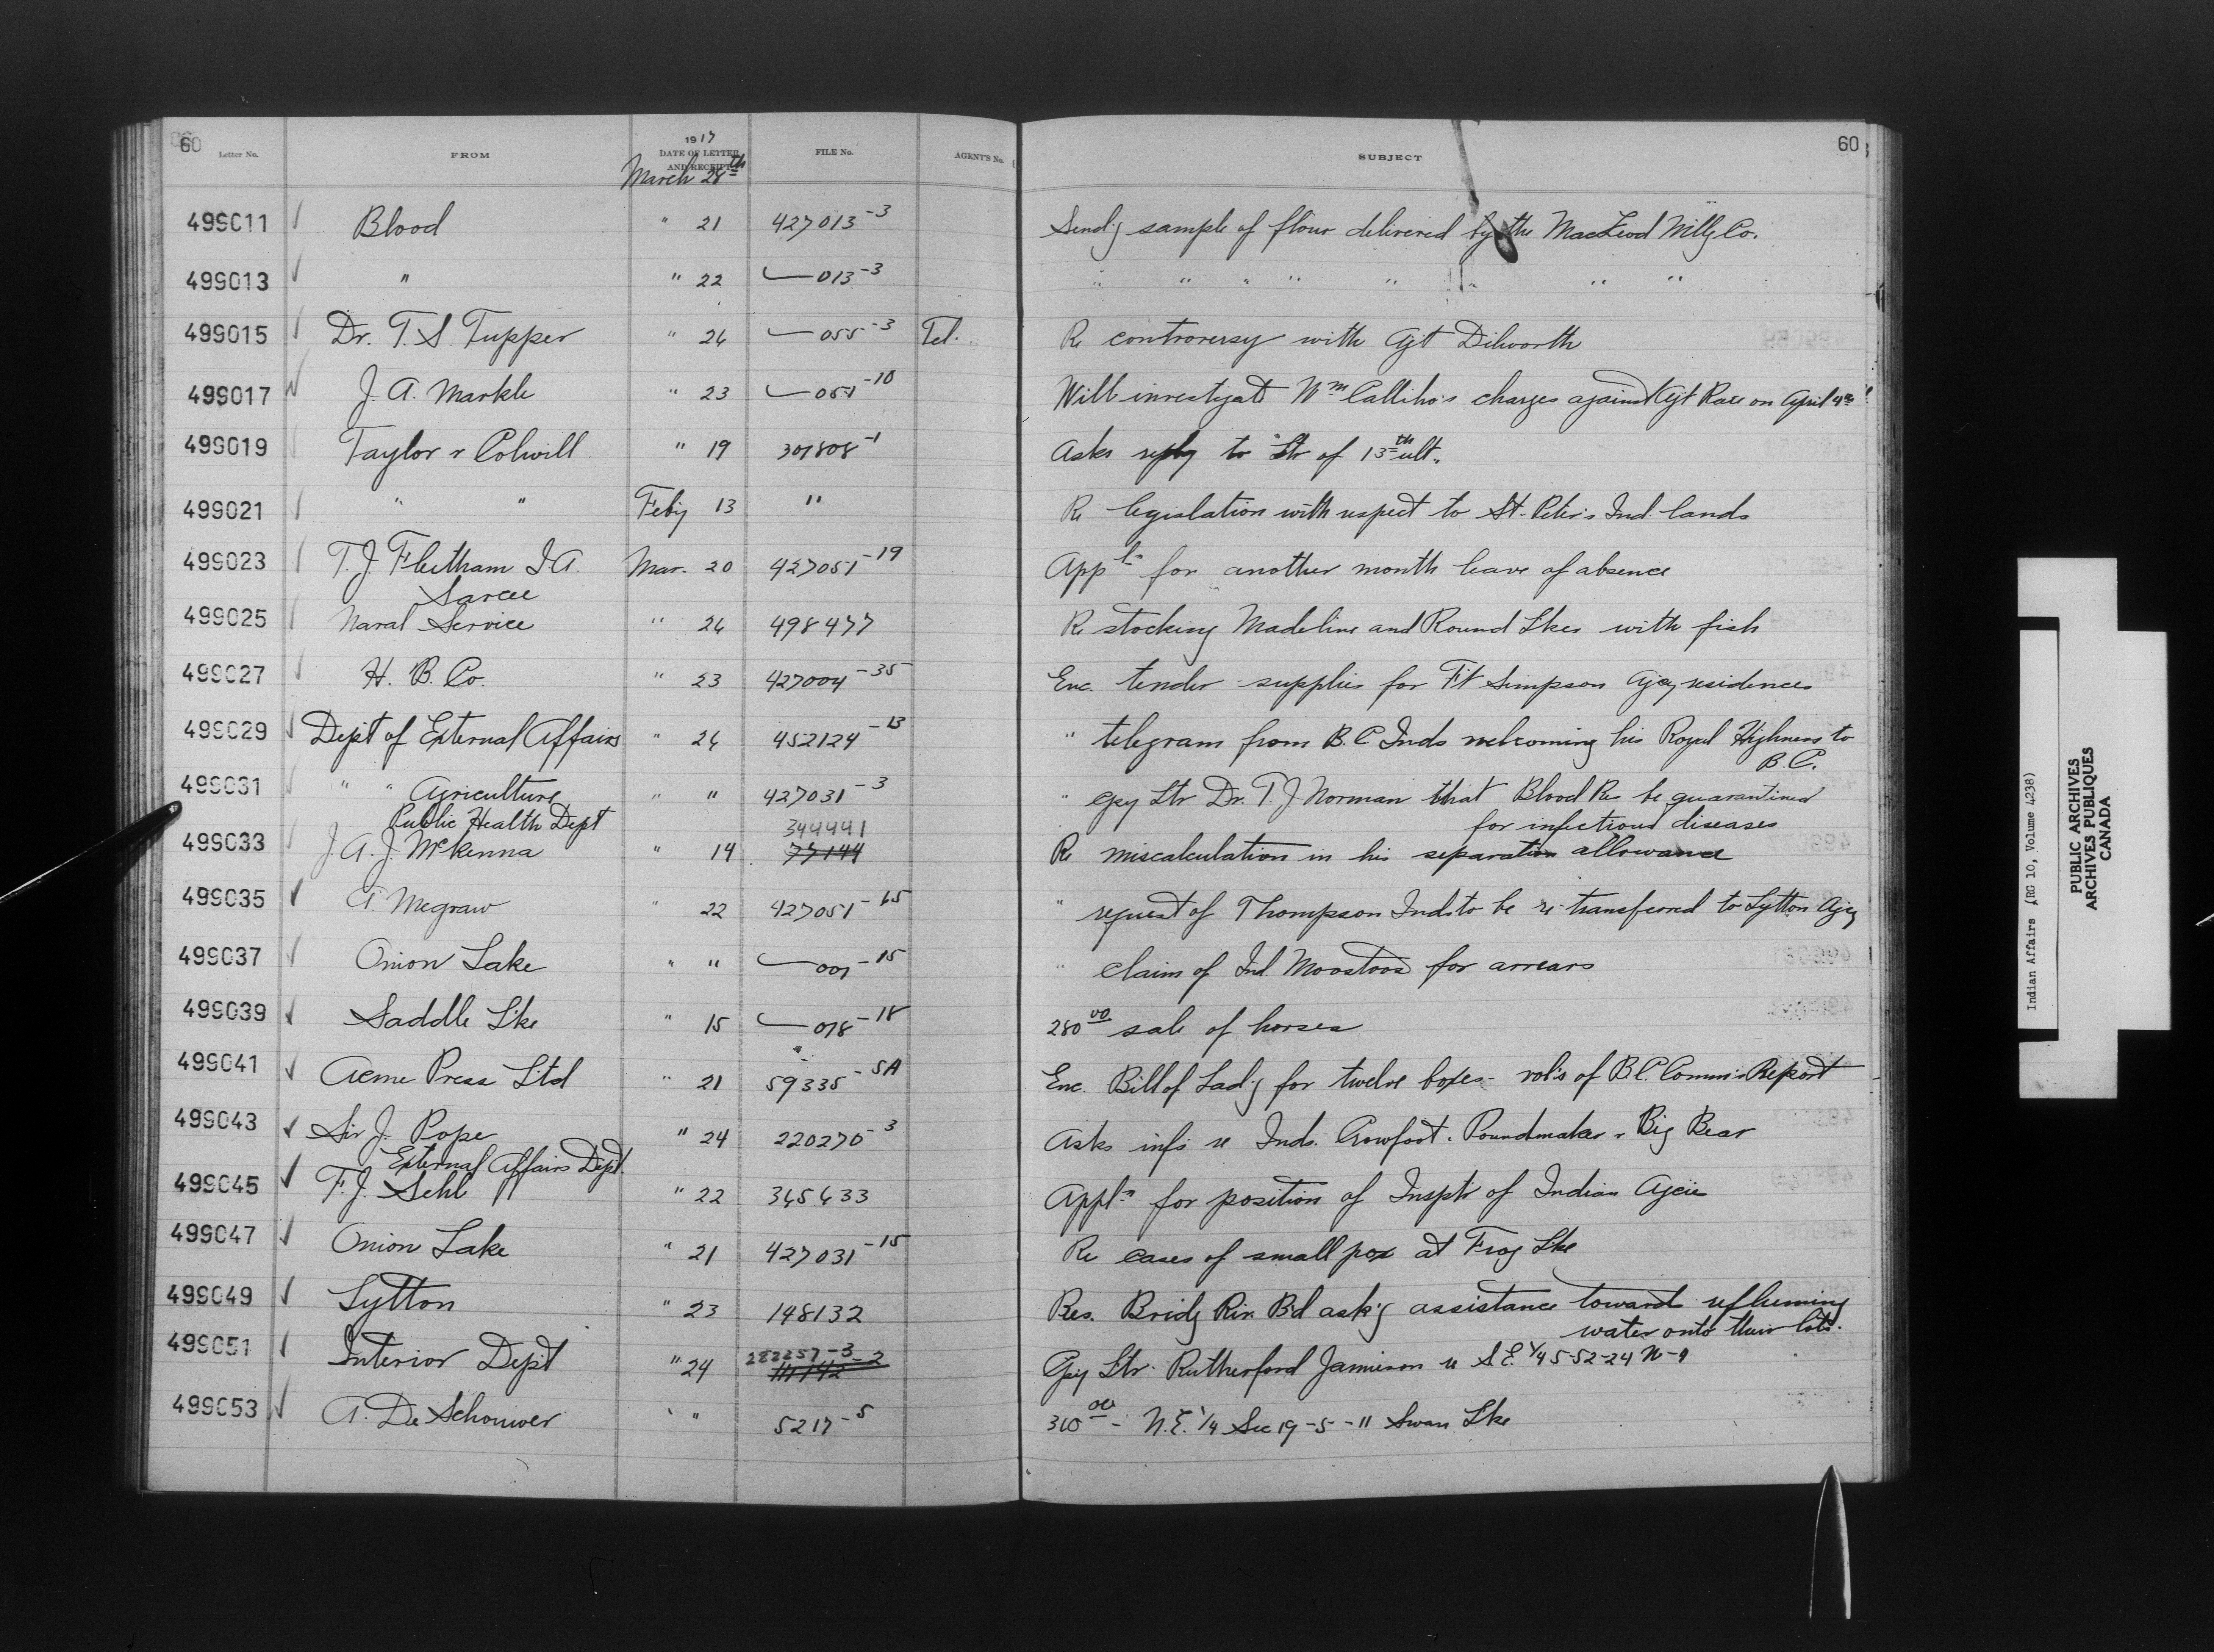 60
Letter No. FROM 1917 DATE OF LETTER AND RECEIPT FILE No. AGENT'S No. SUBJECT 60
March 28th
499011 Blood " 21 427013-3 Send'g sample of flour delivered by the MacLeod Mill'g Co.
499013 " " 22 013-3 " " " " " " " "
499015 Dr. T. S. Tupper " 24 055-3 Tel. Re controversy with Agt Dilworth
499017 J. A. Markle " 23 051-10 Will investigate Wm Calliho's charges against Agt Race on April 4th
499019 Taylor & Colwill " 19 307808-1 Asks reply to Ltr of 13th ult.
499021 " " Feby 13 " Re legislation with respect to St. Peter's Ind. lands
499023 T. J. Fleetham I.A. Mar. 20 427051-19 Appln for another month leave of absence
Sarcee
499025 Naval Service " 24 498477 Re stocking Madeline and Round Lkes with fish
499027 H. B. Co. " 23 427004-35 Enc. tender supplies for Ft Simpson Agcy residences
499029 Dept of External Affairs " 24 452124-13 " telegram from B.C Inds welcoming his Royal Highness to
B.C.
499031 " " Agriculture " " 427031-3 " Cpy Ltr Dr. T. J Norman that Blood Re be quarantined
Public Health Dept for infectious diseases
344441
499033 J. A. J. McKenna " 14 77144 Re miscalculation in his separation allowance
499035 A. Megraw " 22 427051-15 " request of Thompson Inds to be re-transferred to Lytton Agcy
499037 Onion Lake " " 007-15 " claim of Ind. Moostoos for arrears
499039 Saddle L'ke " 15 078-18 280 00 sale of horses
499041 Acme Press L'td " 21 59335-5A Enc. Bill of Lad'g for twelve boxes - vol's of B.C. Comm's Report
499043 Sir J. Pope " 24 220270-3 Asks info re Inds. Crowfoot, Poundmaker & Big Bear
External Affairs Dept.
499045 F. J. Sehl " 22 345433 Appl'n for position of Insptr of Indian Agcies
499047 Onion Lake " 21 427031-15 Re cases of small pox at Frog L'ke
499049 Lytton " 23 148132 Res. Bridg Riv. B'd ask'g assistance toward refluming
water onto their lots.
282257-3
499051 Interior Dept " 24 111142-2 Cpy Ltr. Rutherford Jamieson re S.E. 1/4 5-52-24 W-4
499053 A. De Schouwer " " 5217-5 310 00 - N.E. 1/4 Sec 19-5-11 Swan Lke
Indian Affairs (RG 10, Volume 4238)
PUBLIC ARCHIVES
ARCHIVES PUBLIQUES
CANADA